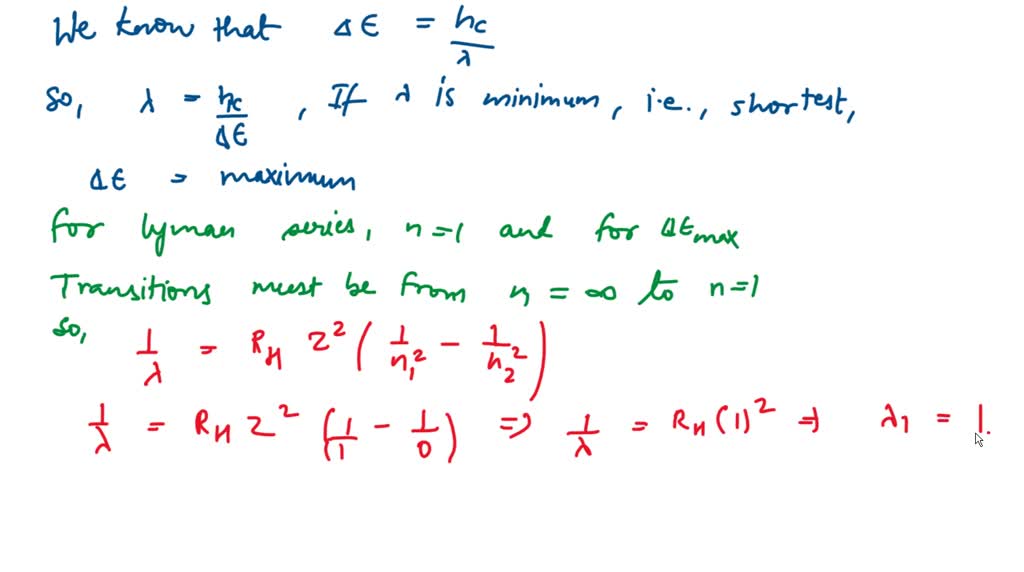 We know that ΔE = hc/λ
So, λ = hc/ΔE , If λ is minimum, i.e., shortest,
ΔE = maximum
For lyman series, n=1 and for ΔEmax
Transitions must be from n = ∞ to n=1
So,
1/λ = R_H Z² (1/n₁² − 1/n₂²)
1/λ = R_H Z² (1/1 − 1/0) ⇒ 1/λ = R_H (1)² ⇒ λ1 = 1.